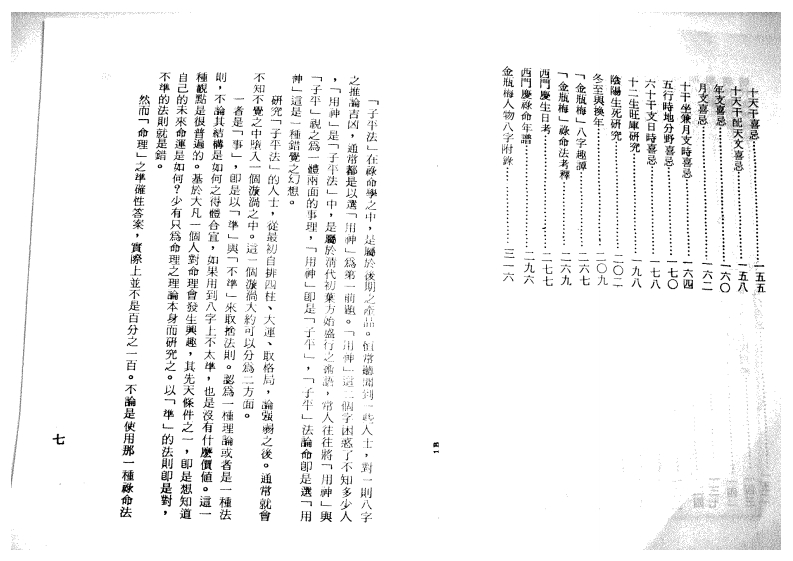 十天干喜忌………………一五五
十天干配天文喜忌………………一五八
年支喜忌………………一六〇
月支喜忌………………一六二
十干坐兼月支時喜忌………………一六四
五行時地分野喜忌………………一七〇
六十干支日時喜忌………………一七八
十二生旺庫研究………………一九八
陰陽生死研究………………二〇二
冬至與換年………………二〇九
「金瓶梅」八字趣譚………………二六七
「金瓶梅」祿命法考釋………………二六九
西門慶生日考………………二七七
西門慶祿命年譜………………二九六
金瓶梅人物八字附錄………………三一六
1B
「子平法」在祿命學之中，是屬於後期之產品。恒常聽聞到一些人士，對一則八字
之推論吉凶，通常都是以選「用神」為第一前題。「用神」這二個字困惑了不知多少人
，「用神」是「子平法」中，是屬於清代初葉方始盛行之術語，常人往往將「用神」與
「子平」視之為一體兩面的事理，「用神」即是「子平」，「子平」法論命即是選「用
神」這是一種錯覺之幻想。
研究「子平法」的人士，從最初自排四柱、大運、取格局，論強弱之後。通常就會
不知不覺之中墮入一個漩渦之中。這一個漩渦大約可以分為二方面。
一者是「事」，即是以「準」與「不準」來取捨法則。認為一種理論或者是一種法
則，不論其結構是如何之得體合宜，如果用到八字上不太準，也是沒有什麼價值。這一
種觀點是很普遍的。基於大凡一個人對命理會發生興趣，其先天條件之一，即是想知道
自己的未來命運是如何？少有只為命理之理論本身而研究之。以「準」的法則即是對，
不準的法則就是錯。
然而「命理」之準確性答案，實際上並不是百分之一百。不論是使用那一種祿命法
七